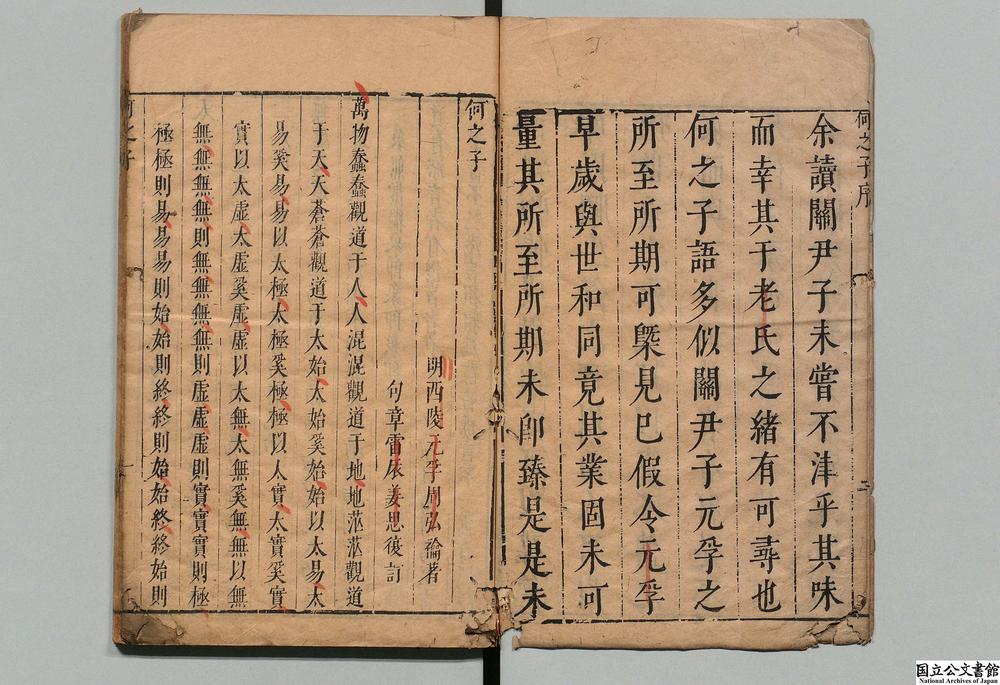 何之子序
余讀關尹子未嘗不津乎其味
而幸其于老氏之緒有可尋也
何之子語多似關尹子元孚之
所至所期可槩見已假令元孚
早歲與世和同竟其業固未可
量其所至所期未卽臻是是未
何之子
明西陵元孚周弘禴著
句章雷辰姜思復訂
萬物蠢蠢觀道于人人混混觀道于地地茫茫觀道
于天天蒼蒼觀道于太始太始奚始始以太易太
易奚易易以太極太極奚極極以人實太實奚實
實以太虛太虛奚虛虛以太無太無奚無無以無
無無無無則無無無無則虛虛虛則實實實則極
極極則易易易則始始則終終則始始終終始則
何之子
国立公文書館
National Archives of Japan